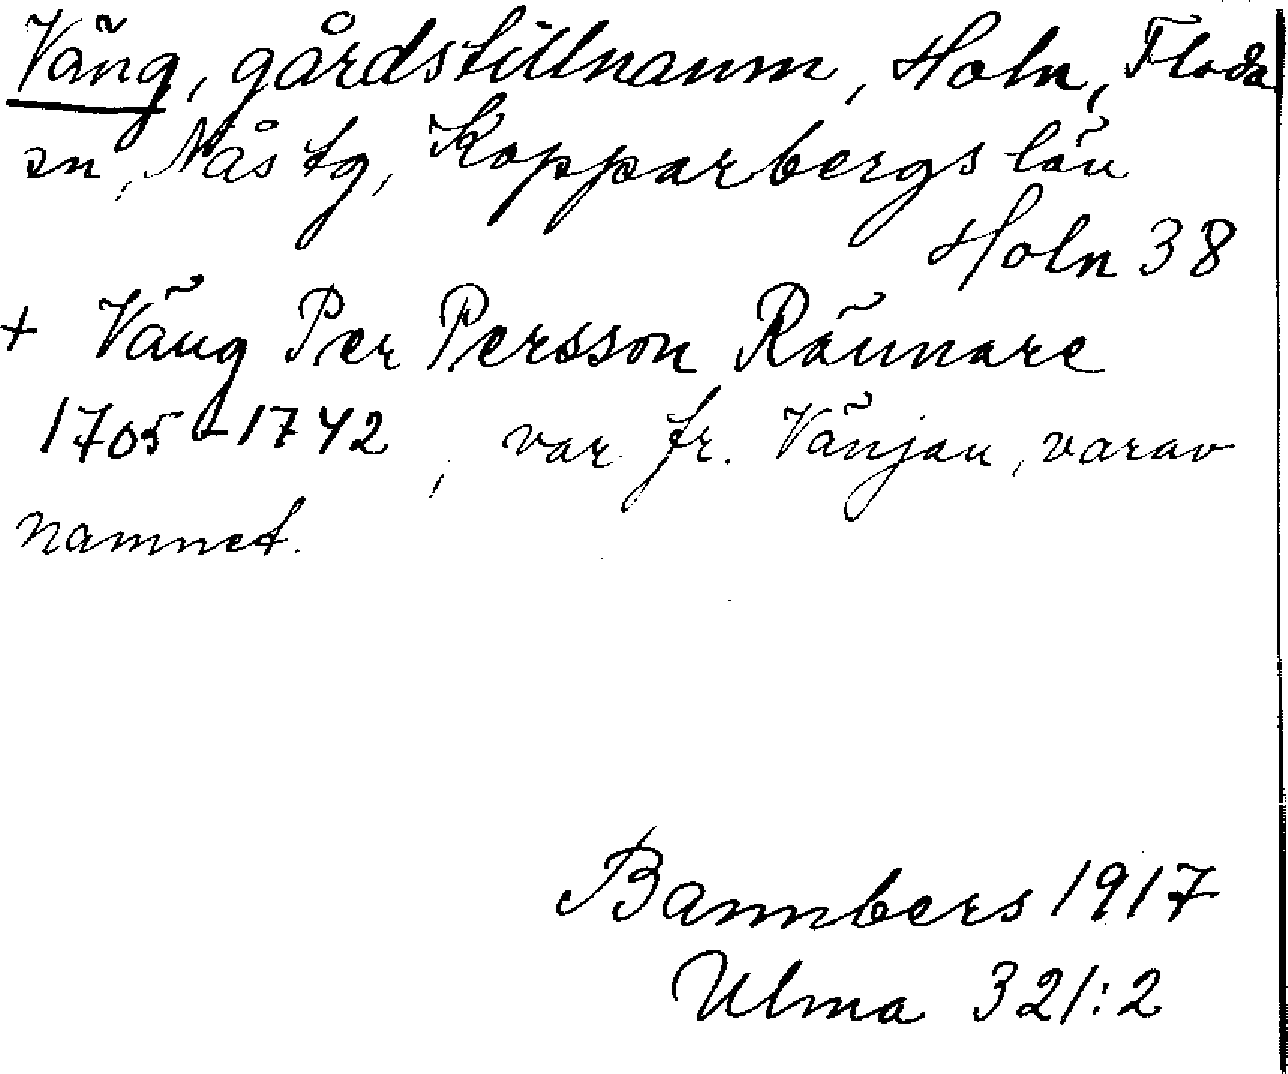 Väng, gårdstillnamn, Holn, Floda
sn, Nås tg, Kopparbergs län
Holn 38
+ Väng Per Persson Rännare
1705-1742, var fr. Vänjan, varav
namnet.
Bannbers 1917
Ulma 321:2